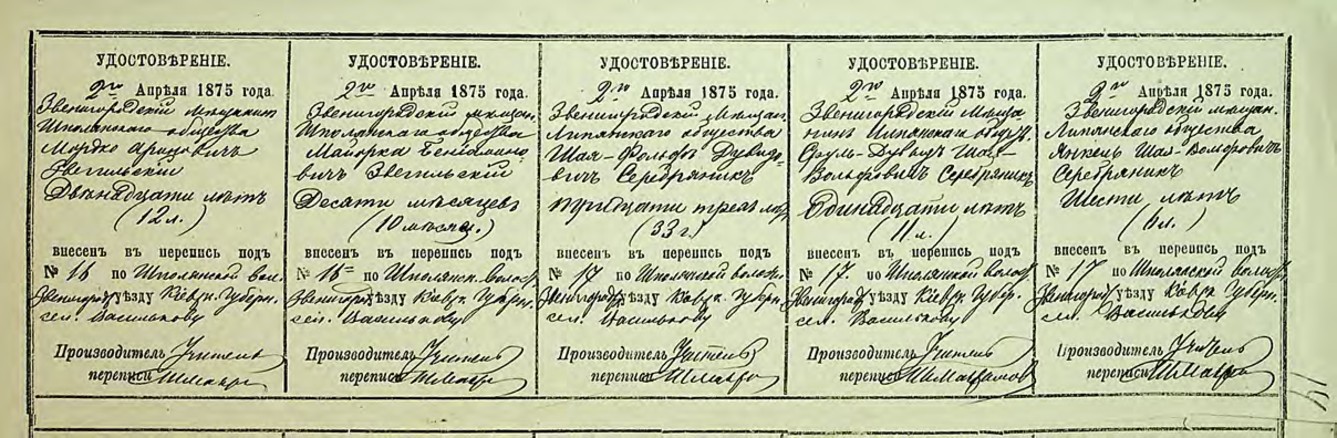 УДОСТОВѢРЕНІЕ.
2го Апрѣля 1875 года.
Звенигородскій мѣщанинъ
Шполянскаго общества
Мордко
Звегильскій
Двѣнадцати лѣтъ
(12 л.)
внесенъ въ перепись подъ
№ 16 по Шполянской вол.
Звенигород уѣзду Кіевск. Губерн.
сел. Василькову
Производитель Учитель
переписи
УДОСТОВѢРЕНІЕ.
2го Апрѣля 1875 года.
Звенигородскій мѣщан.
Шполянскаго общества
Майорка Беніамино
вичъ Звегильскій
Десяти мѣсяцевъ
(10 мѣсяц.)
внесенъ въ перепись подъ
№ 16 по Шполянск. волост
Звенигород уѣзду Кіевск. Губерн.
сел. Василькову
Производитель Учитель
переписи
УДОСТОВѢРЕНІЕ.
2го Апрѣля 1875 года.
Звенигородскій мѣщан.
общества
Шая-Вольфъ Дувидо
вичъ Серебряникъ
тридцати трехъ лѣт
(33 г.)
внесенъ въ перепись подъ
№ 17 по Шполянской волост.
Звенигород уѣзду Кіевск. Губерн.
сел. Василькову
Производитель Учитель
переписи
УДОСТОВѢРЕНІЕ.
2го Апрѣля 1875 года.
Звенигородскій мѣща
нинъ общ.
Сруль-Дувидъ Шая-
Вольфовичъ Серебряникъ
Одинадцати лѣтъ
(11 л.)
внесенъ въ перепись подъ
№ 17. по Шполянской волост
Звенигород уѣзду Кіевск. Губерн.
сел. Василькову
Производитель Учитель
переписи
УДОСТОВѢРЕНІЕ.
2го Апрѣля 1875 года.
Звенигородскій мѣщан.
общества
Янкель Шая-Вольфовичъ
Серебряникъ
Шести лѣтъ
(6 л.)
внесенъ въ перепись подъ
№ 17 по Шполянской волост
Звенигород уѣзду Кіевск Губерн.
сел. Василькову
Производитель Учитель
переписи